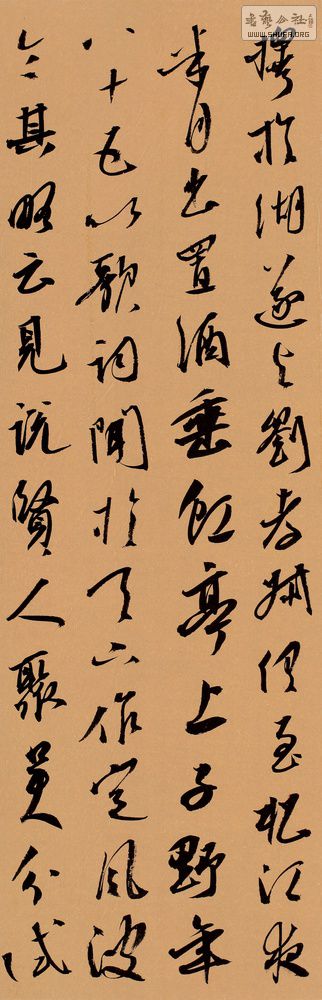 擇於湖遂與劉孝叔俱至松江夜
半月出置酒垂虹亭上子野年
八十五以歌詞聞於天下作定風波
令其略云見說賢人聚吳分試
書藝公社
WWW.SHUFA.ORG